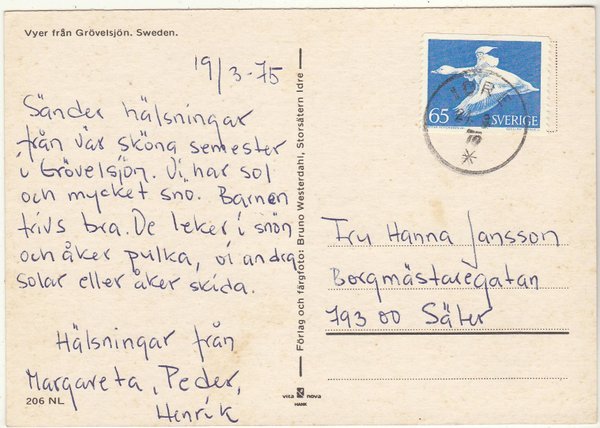 Vyer från Grövelsjön. Sweden.
19/3-75
Sänder hälsningar
från vår sköna semester
i Grövelsjön. Vi har sol
och mycket snö. Barnen
trivs bra. De leker i snön
och åker pulka, vi andra
solar eller åker skida.
Hälsningar från
Margareta, Peder,
Henrik
206 NL
Förlag och färgfoto: Bruno Westerdahl, Storsätern Idre
vita nova
HANK
65 SVERIGE
IDRE
Fru Hanna Jansson
Borgmästaregatan
793 00 Säter